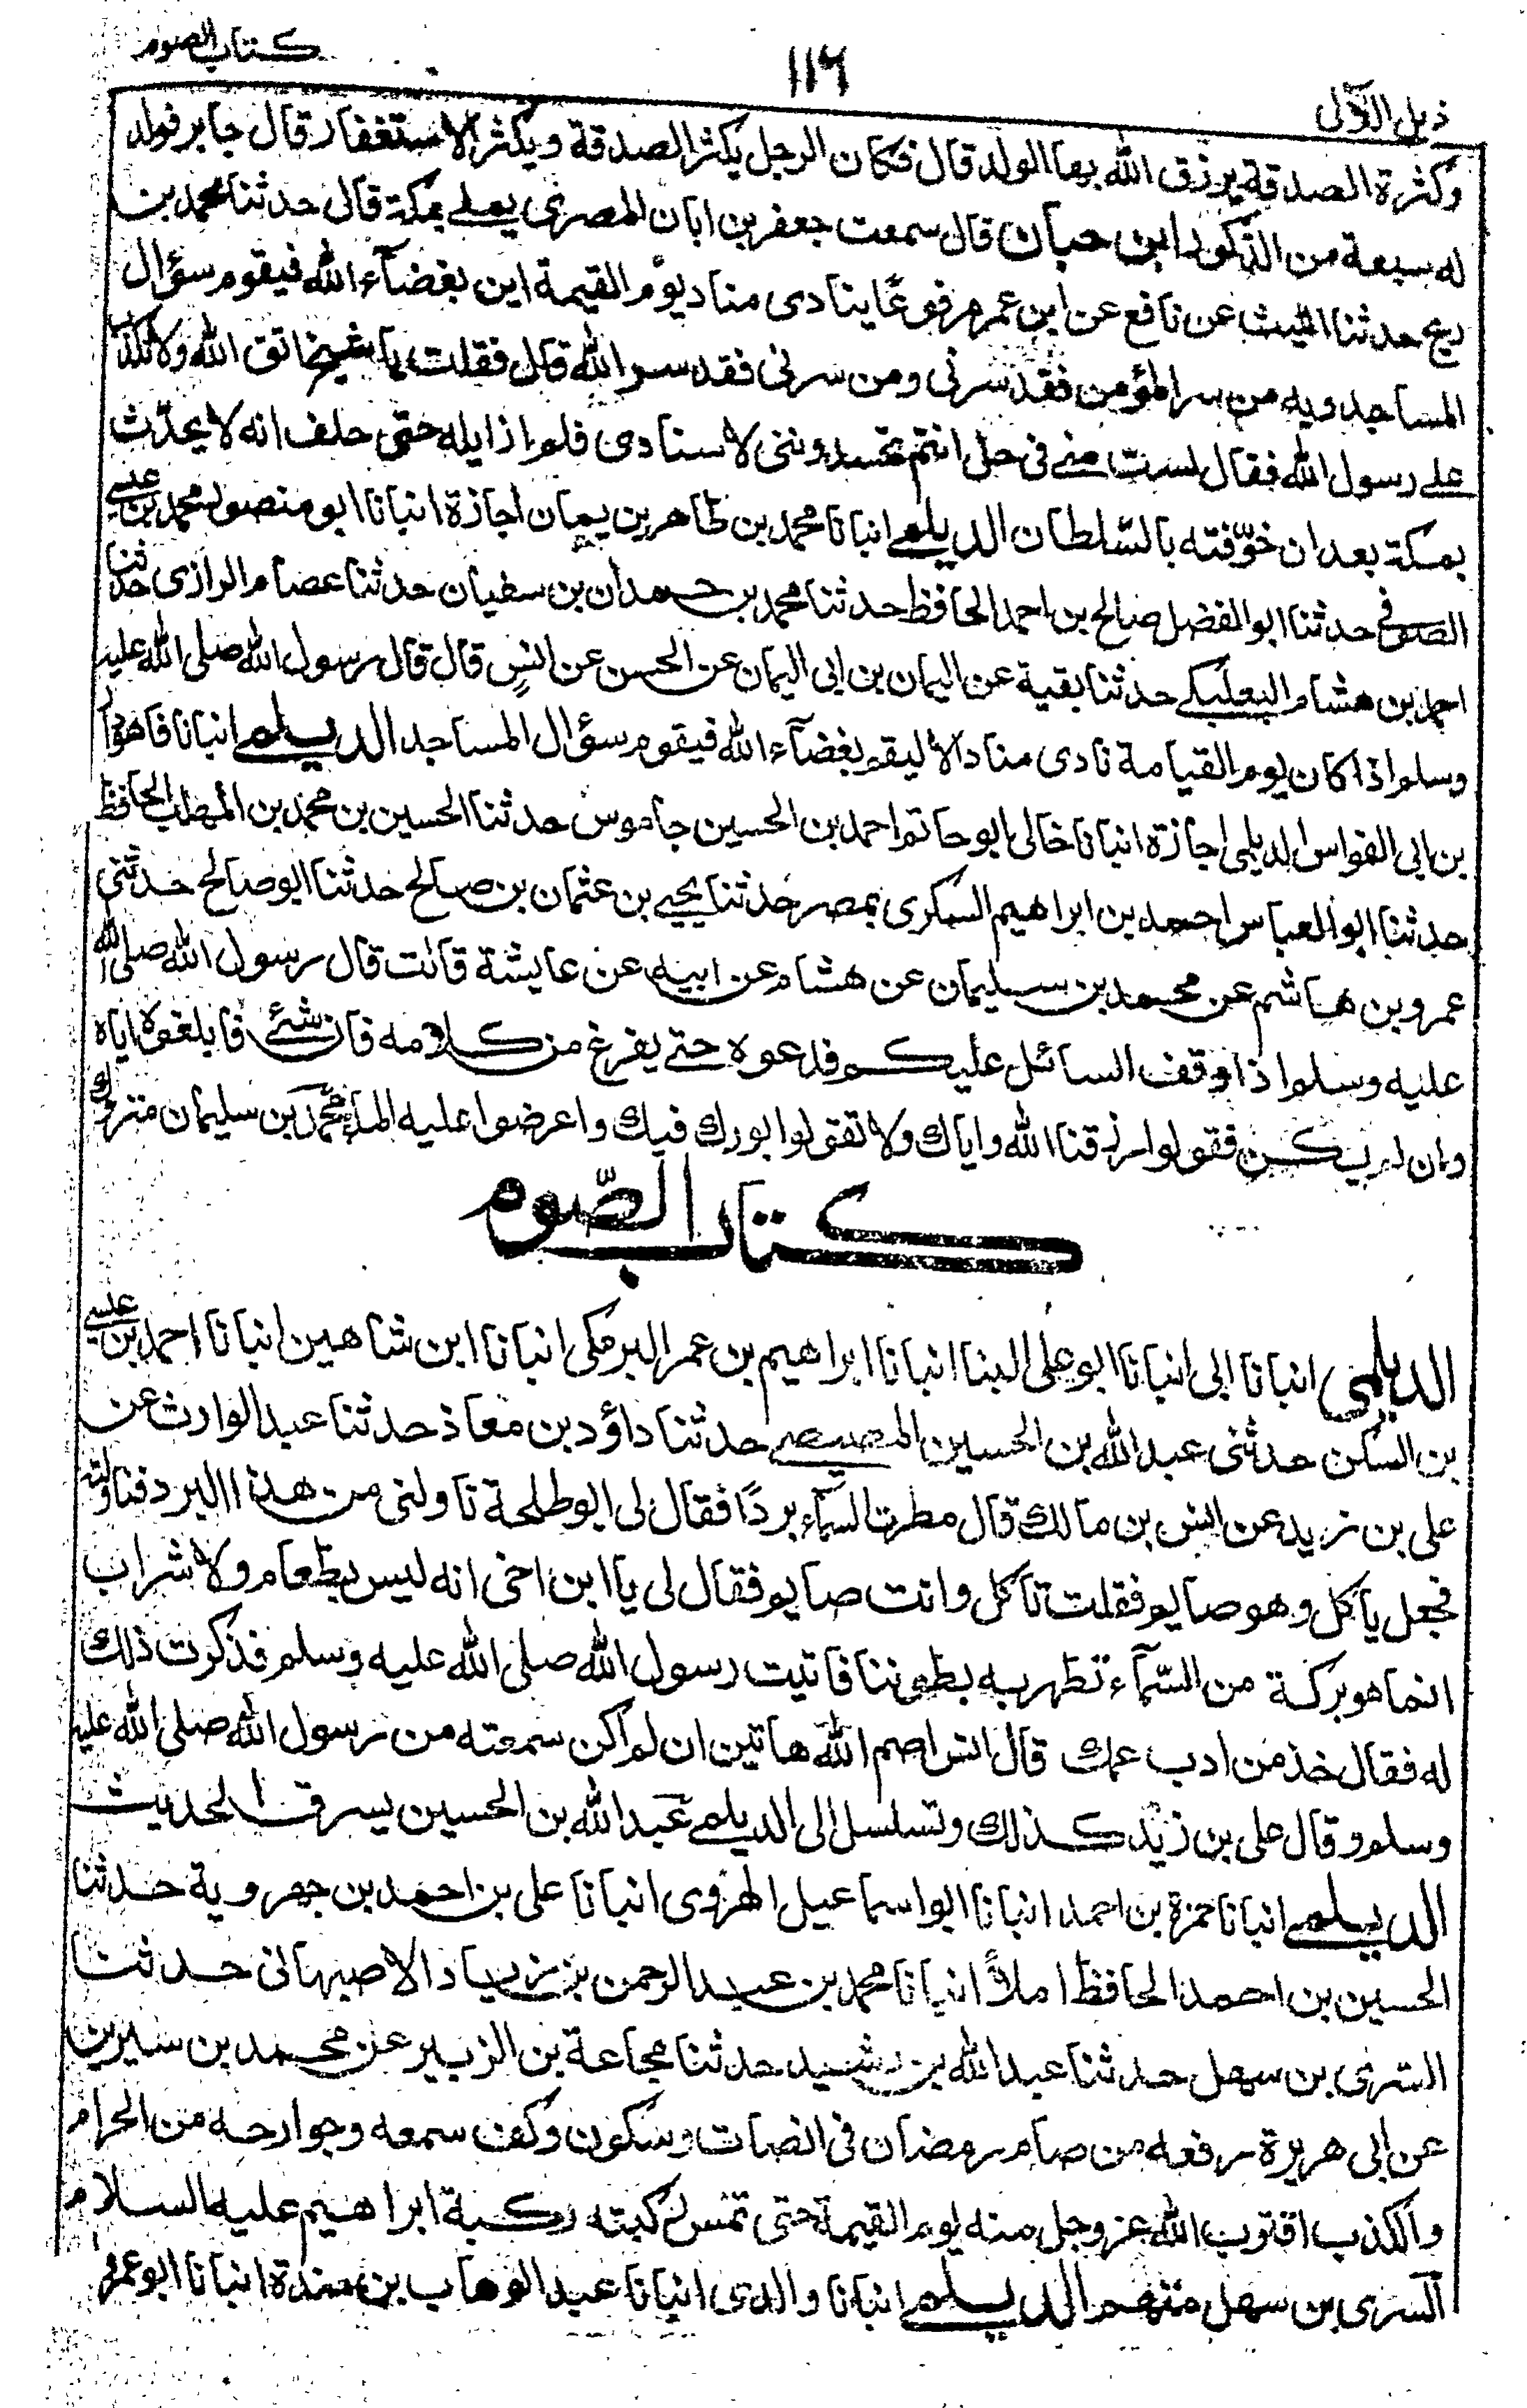 كتاب الصوم
١١٦
ذيل اللآلى
وكثرة الصدقة يرزق الله بها الولد قال فكان الرجل يكثر الصدقة ويكثر الاستغفار قال جابر فولد
له سبعة من الذكور ابن حبان قال سمعت جعفر بن ابان المصرى يملے بمكة قال حدثنا محمد بن
رمح حدثنا الليث عن نافع عن ابن عمر مرفوعًا ينادى مناد يوم القيمة اين بغضآء الله فيقوم سؤال
المساجد وبه من سر المؤمن فقد سرنى ومن سرنى فقد سر الله قال فقلت يا شيخ اتق الله ولا تكذب
علے رسول الله فقال لست منے فى حل انتم تحسدوننى لاسنادى فلم ازايله حتى حلف انه لا يحدّث
بمكة بعد ان خوّفته بالسّلطان الديلمے انبانا محمد بن طاهر بن يمان اجازة انبانا ابو منصور محمد بن عيسے
الصوفے حدثنا ابو الفضل صالح بن احمد الحافظ حدثنا محمد بن حمدان بن سفيان حدثنا عصام الرازى حدثنا
احمد بن هشام البعلبكے حدثنا بقية عن اليمان بن ابى اليمان عن الحسن عن انس قال قال رسول الله صلى الله عليه
وسلم اذا كان يوم القيامة نادى مناد الا ليقم بغضآء الله فيقوم سؤال المساجد الديلمے انبانا
بن ابى الفواس الديلمى اجازة انبانا خالى ابو حاتم احمد بن الحسين جاموس حدثنا الحسين بن محمد بن المهلب الحافظ
حدثنا ابو العباس احمد بن ابراهيم السكرى بمصر حدثنا يحيے بن عثمان بن صالح حدثنا ابو صالح حدثنى
عمرو بن هاشم عن محمد بن سليمان عن هشام عن ابيه عن عايشة قالت قال رسول الله صلى الله
عليه وسلم اذا وقف السائل عليكم فدعوه حتے يفرغ من كلامه فان شئے فابلغوه اياه
وان لم يكن فقولوا رزقنا الله واياك ولا تقولوا بورك فيك واعرضوا عليه الماء محمد بن سليمان متروك
كتاب الصّوم
الديلمى انبانا ابى انبانا ابو على البنا انبانا ابراهيم بن عمر البرمكى انبانا ابن شاهين انبانا احمد بن عيسے
بن السكن حدثنى عبد الله بن الحسين المصيصے حدثنا داؤد بن معاذ حدثنا عبد الوارث عن
على بن زيد عن انس بن مالك قال مطرت السمآء بردًا فقال لى ابو طلحة ناولنى من هذا البرد فناولته
فجعل ياكل وهو صايم فقلت تاكل وانت صايم فقال لى يا ابن اخى انه ليس بطعام ولا شراب
انما هو بركة من السّمآء تطهر به بطوننا فاتيت رسول الله صلى الله عليه وسلم فذكرت ذلك
له فقال خذ من ادب عمك قال انس اصم الله هاتين ان لم اكن سمعته من رسول الله صلى الله عليه
وسلم وقال على بن زيد كذلك وتسلسل الى الديلمے عبد الله بن الحسين يسرق الحديث
الديلمے انبانا حمزة بن احمد انبانا ابو اسماعيل الهروى انبانا على بن احمد بن جهروية حدثنا
الحسين بن احمد الحافظ املاً انبانا محمد بن عبد الرحمن بن زياد الاصبهانى حدثنا
السرى بن سهل حدثنا عبد الله بن رشيد حدثنا مجاعة بن الزبير عن محمد بن سيرين
عن ابى هريرة رفعه من صام رمضان فى انصات وسكون وكف سمعه وجوارحه من الحرام
والكذب اقترب الله عز وجل منه يوم القيمة حتى تمس ركبته ركبة ابراهيم عليه السلام
السرى بن سهل متهم الديلمے انبانا والدى انبانا عبد الوهاب بن مندة انبانا ابو عمرو